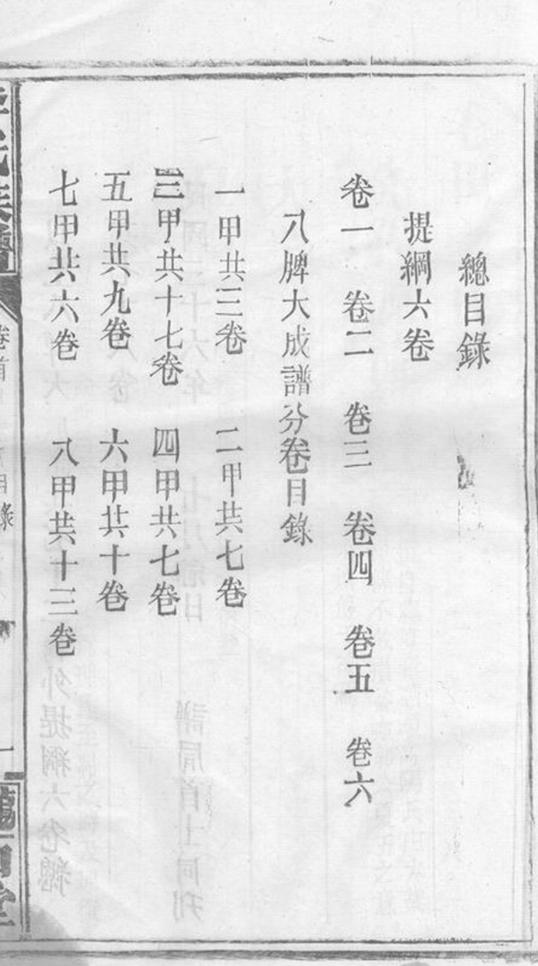 總目錄
提綱六卷
卷一 卷二 卷三 卷四 卷五 卷六
八牌大成譜分卷目錄
一甲共三卷 二甲共七卷
三甲共十七卷 四甲共七卷
五甲共九卷 六甲共十卷
七甲共六卷 八甲共十三卷
氏族譜
卷首
目錄
一
堂